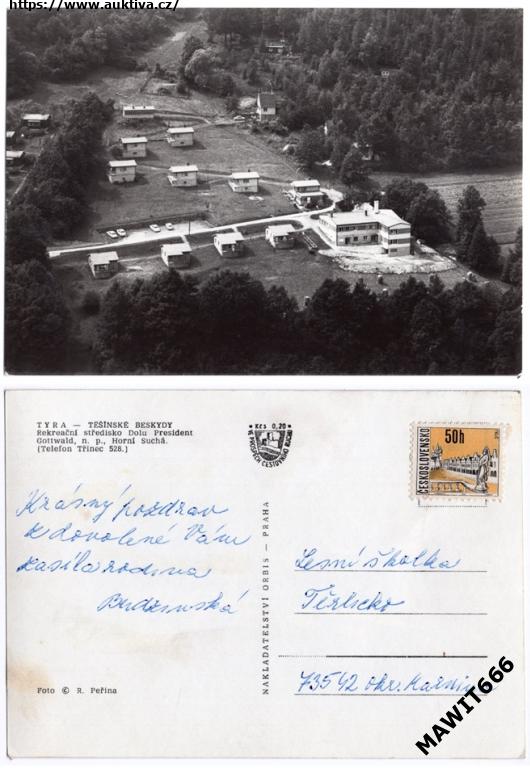 https://www.auktiva.cz/
TYRA — TĚŠÍNSKÉ BESKYDY
Rekreační středisko Dolu President
Gottwald, n. p., Horní Suchá.
(Telefon Třinec 528.)
Kčs 0,20
VE PROSPĚCH CESTOVNÍHO RUCHU
ČESKOSLOVENSKO
50h
Krásný pozdrav
z dovolené Vám
zasíla rodina
Budzinská
NAKLADATELSTVÍ ORBIS — PRAHA
Lesní školka
Těrlicko
73542 okr. Karviná
Foto © R. Peřina
MAWIT666